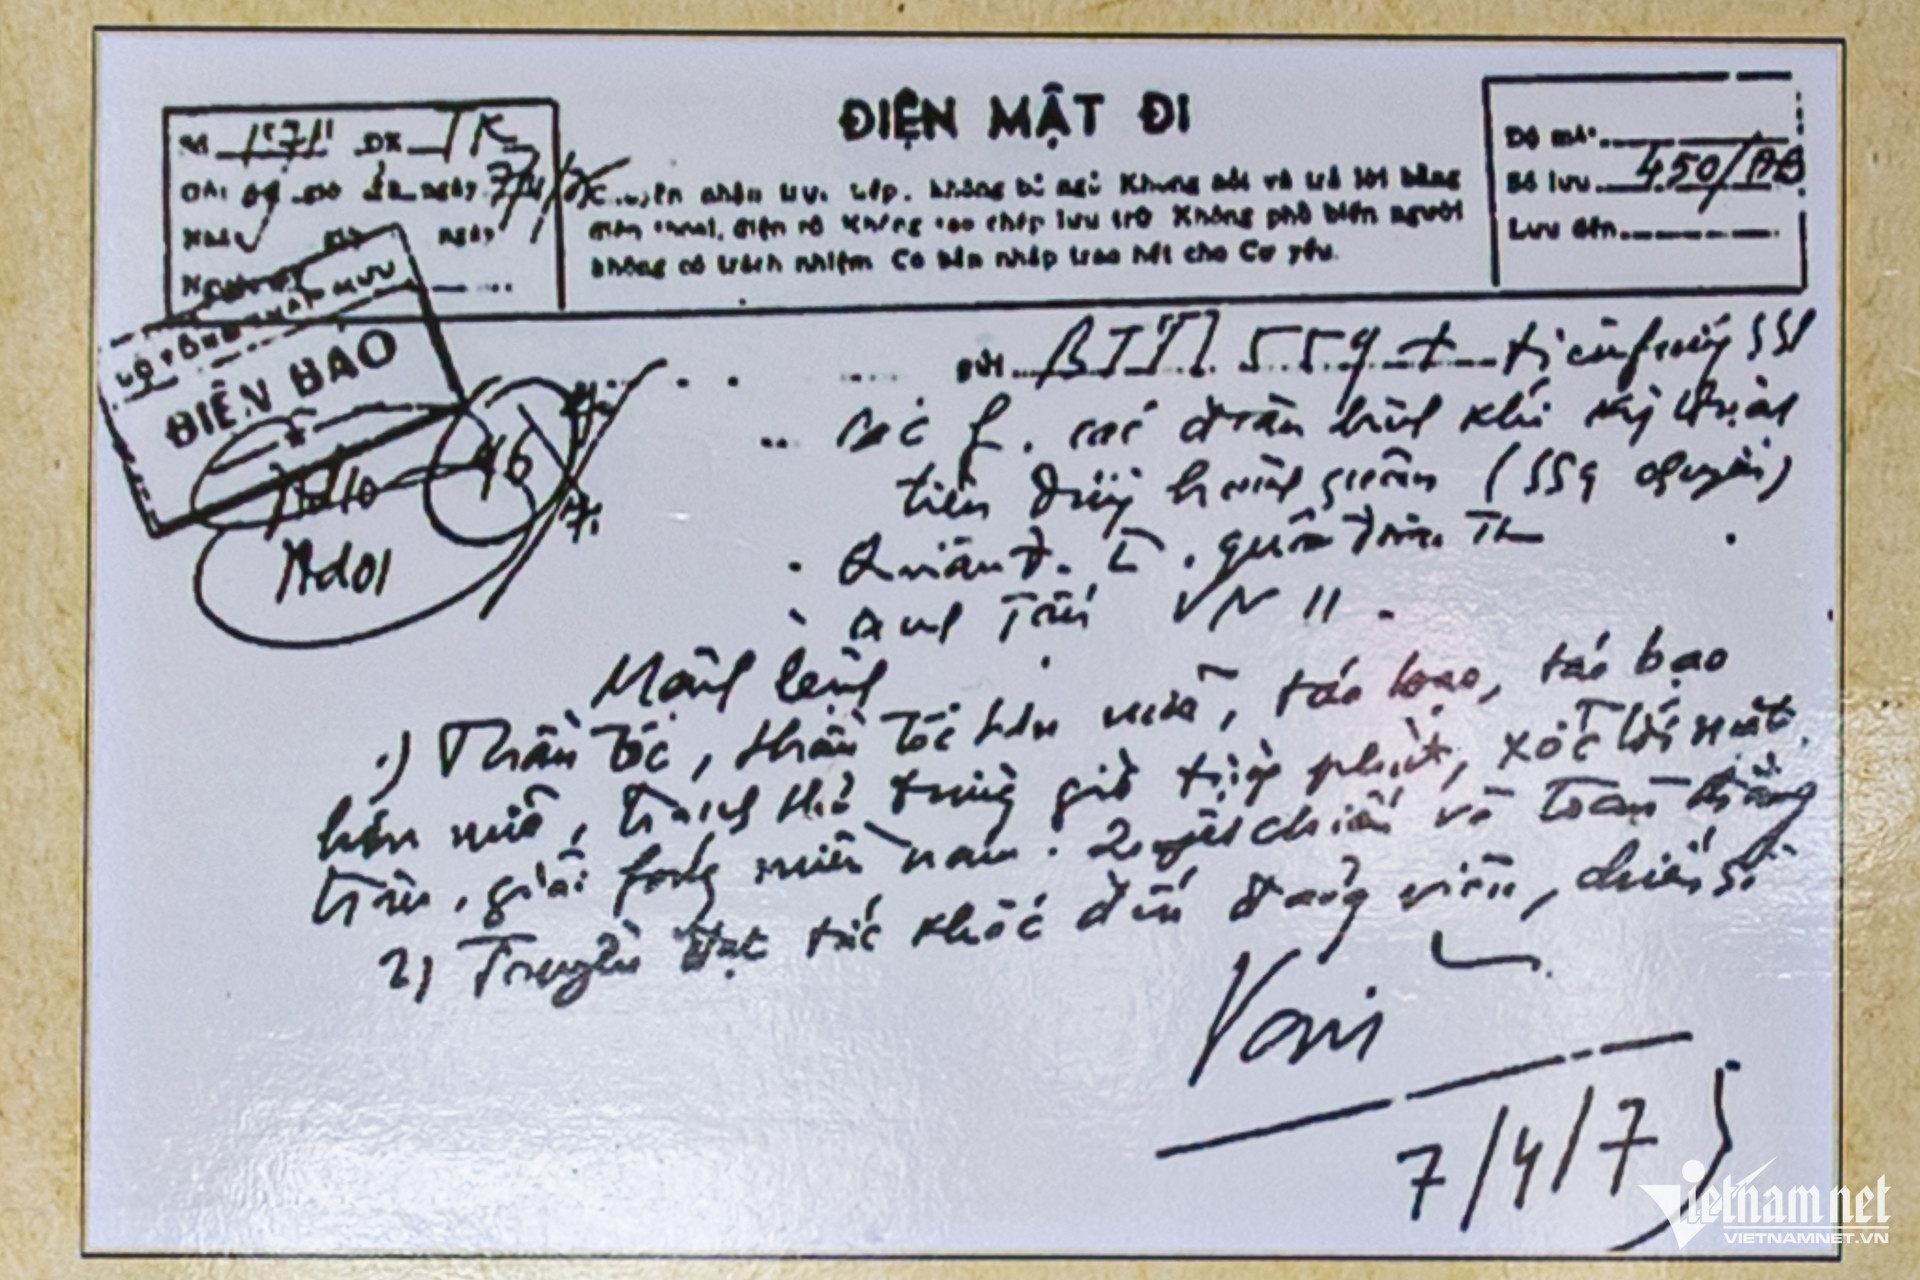 ĐIỆN MẬT ĐI
Số 1571 ĐK TK
ngày 7/4/75
Chuyển nhận trực tiếp, không bỏ ngỏ Không nói và trả lời bằng
điện thoại, điện rõ Không sao chép lưu trữ Không phổ biến người
không có trách nhiệm Có bản nháp trao hết cho Cơ yếu.
Độ mã
Số lưu 450/ĐB
Lưu đến
BỘ TỔNG THAM MƯU
ĐIỆN BÁO
46
Ad01
Gửi BTTL 559 + tiền fương 559
các f, các đoàn binh khí kỹ thuật
tiến đang hành quân (559 chuyển)
Quân đ. I, quân đoàn
Anh Tấn VN 11.
Mệnh lệnh
1) Thần tốc, thần tốc hơn nữa, táo bạo, táo bạo
hơn nữa, tranh thủ từng giờ từng phút, xốc tới mặt
trận, giải fóng miền nam. Quyết chiến và toàn thắng
2) Truyền đạt tức khắc đến đảng viên, chiến sĩ
Văn
7/4/75
Vietnamnet
VIETNAMNET.VN